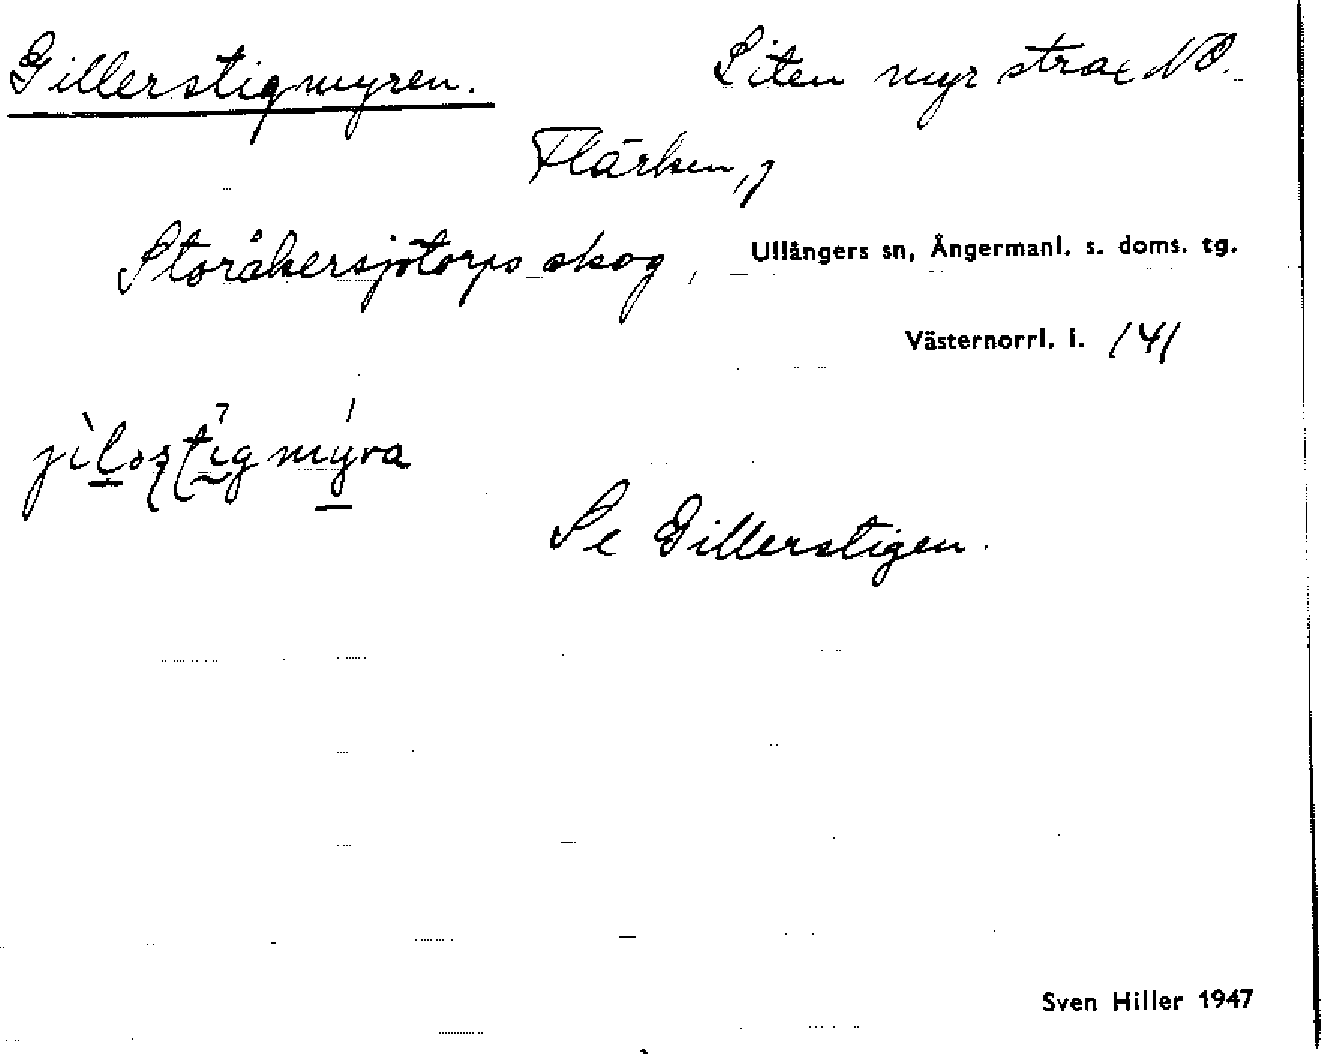 Gillerstigmyren. Liten myr strax NO.
Flärken,
Storåkersjötorps skog, Ullångers sn, Ångermanl. s. doms. tg.
Västernorrl. l. 141
Se Gillerstigen.
Sven Hiller 1947